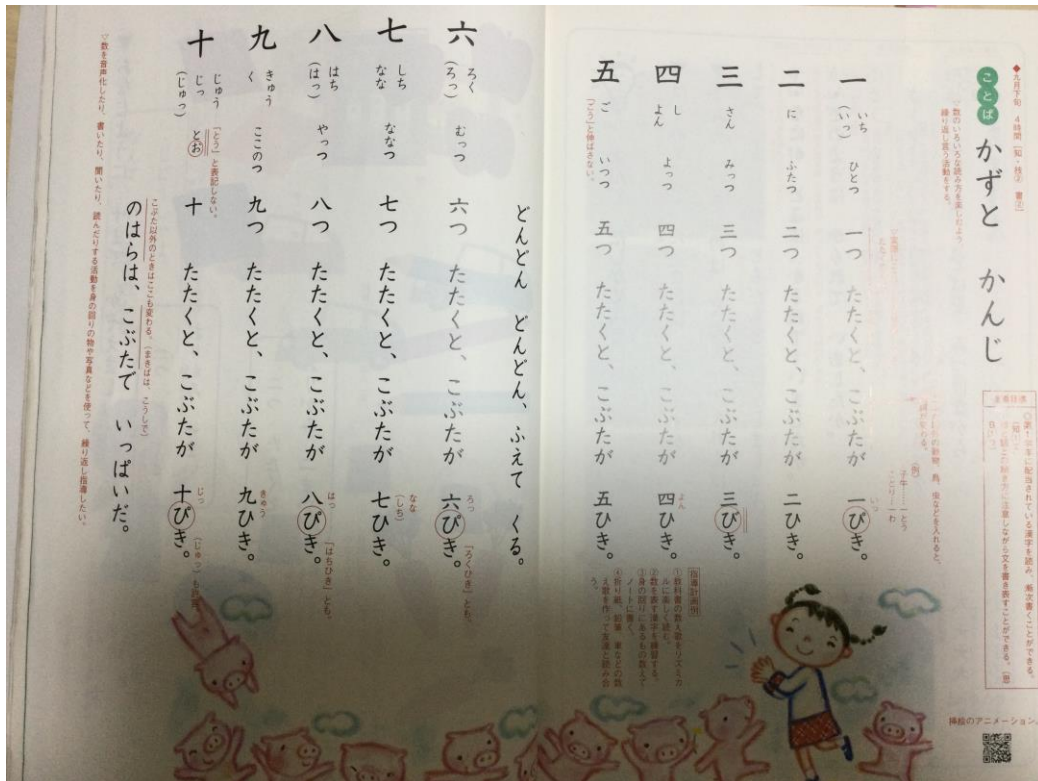 ◆九月下旬 4時間
ことば
かずと かんじ
▽数のいろいろな読み方を楽しむよう
繰り返し言う活動をする。
一 いち (いっ) ひとつ 一つ たたくと、こぶたが 一ぴき。 いっ
二 に ふたつ 二つ たたくと、こぶたが 二ひき。
三 さん みっつ 三つ たたくと、こぶたが 三びき。
四 し よん よっつ 四つ たたくと、こぶたが 四ひき。 よん
五 ご いつつ 五つ たたくと、こぶたが 五ひき。
「ごう」と伸ばさない。
(例)
子牛……とう
ことり……わ
指導計画例
①教科書の数え歌をリズミカ
ルに楽しく読む。
②数を表す漢字を練習する。
③身の回りにあるもの数えて
ノートに書く。
④折り紙、鉛筆、車などの数
え歌を作って友達と読み合
う。
挿絵のアニメーション
どんどん どんどん、ふえて くる。
六 ろく (ろっ) むっつ 六つ たたくと、こぶたが 六ぴき。 ろっ
「ろくひき」とも。
七 しち なな ななつ 七つ たたくと、こぶたが 七ひき。 なな (しち)
八 はち (はっ) やっつ 八つ たたくと、こぶたが 八ぴき。 はっ
「はちひき」とも。
九 きゅう く ここのつ 九つ たたくと、こぶたが 九ひき。 きゅう
十 じゅう じっ (じゅっ) とお 十 たたくと、こぶたが 十ぴき。 じっ
「とう」と表記しない。
こぶた以外のときはここも変わる。(まきばは、こうしで)
のはらは、こぶたで いっぱいだ。
▽数を音声化したり、書いたり、聞いたり、読んだりする活動を身の回りの物や写真などを使って、繰り返し指導したい。